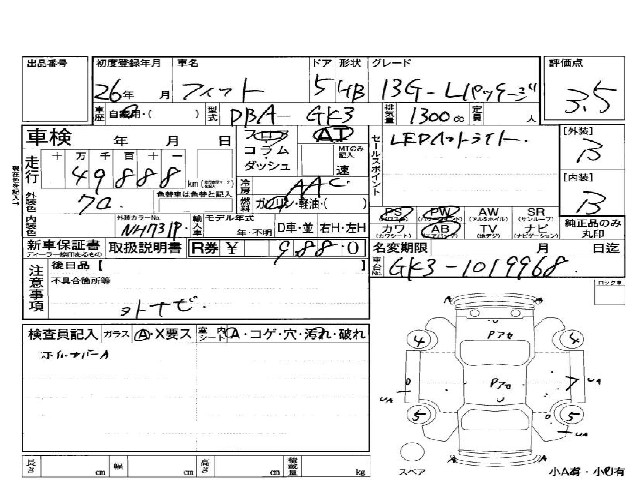 出品番号 初度登録年月 車名 ドア 形状 グレード 評価点
26年 月 フィット 5 HB 13G-Lパッケージ 3.5
車歴 自家用・( ) 型式 DBA-GK3 排気量 1300 cc 定員 人
車検 年 月 日 フロア AT セールスポイント LEDヘッドライト 【外装】
コラム・ MTのみ記入 B
走行 十 万 千 百 十 一 ダッシュ 速
49888 km 冷房 AAC 【内装】
外装色 色替車は色替と記入 燃料 ガソリン・軽油・( ) B
PS PW AW SR 純正品のみ丸印
外装カラーNo. 輸入車 モデル年式 カワ AB TV ナビ
内装色 NH731P 年・不明 D車・並 右H・左H
新車保証書 取扱説明書 R券 ¥ 9880 名変期限 月 日迄
注意事項 後日品【 】 車台No. GK3-1019968
不具合箇所等 ロック車
外ナビ
検査員記入 ガラス A・X要ス 室内シート A・コゲ・穴・汚れ・破れ
4 4
7
5 5
長さ cm 幅 cm 高さ cm 積載量 kg
スペア 小A有・小U有